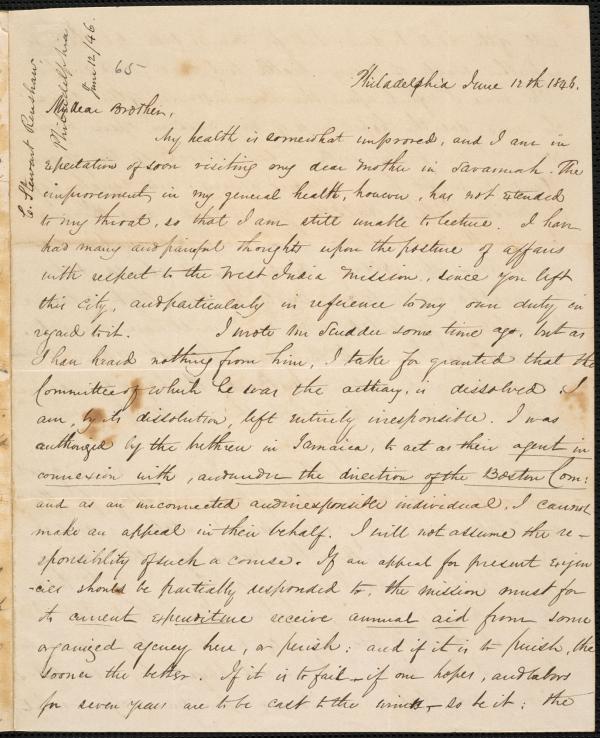 C. Stewart Renshaw,
Philadelphia
June 12/46.
65
Philadelphia June 12th 1846.
My dear Brother,
My health is somewhat improved, and I am in
expectation of soon visiting my dear mother in Savannah. The
improvement, in my general health, however, has not extended
to my throat, so that I am still unable to lecture. I have
had many and painful thoughts upon the posture of affairs
with respect to the West India Mission, since you left
this city, and particularly in reference to my own duty in
regard to it. I wrote Mr Scudder some time ago, but as
I have heard nothing from him, I take for granted that the
Committee of which he was the actuary, is dissolved. I
am, by its dissolution, left entirely irresponsible. I was
authorized by the brethren in Jamaica, to act as their agent in
connexion with, and under the direction of the Boston Com:
and as an unconnected and irresponsible individual, I cannot
make an appeal in their behalf. I will not assume the re-
sponsibility of such a course. If an appeal for present exigen
-cies should be partially responded to, the mission must for
its current expenditure receive annual aid from some
organized agency here, or perish: and if it is to perish, the
sooner the better. If it is to fail - if our hopes, and labors
for seven years are to be cast to the winds, - so be it: the